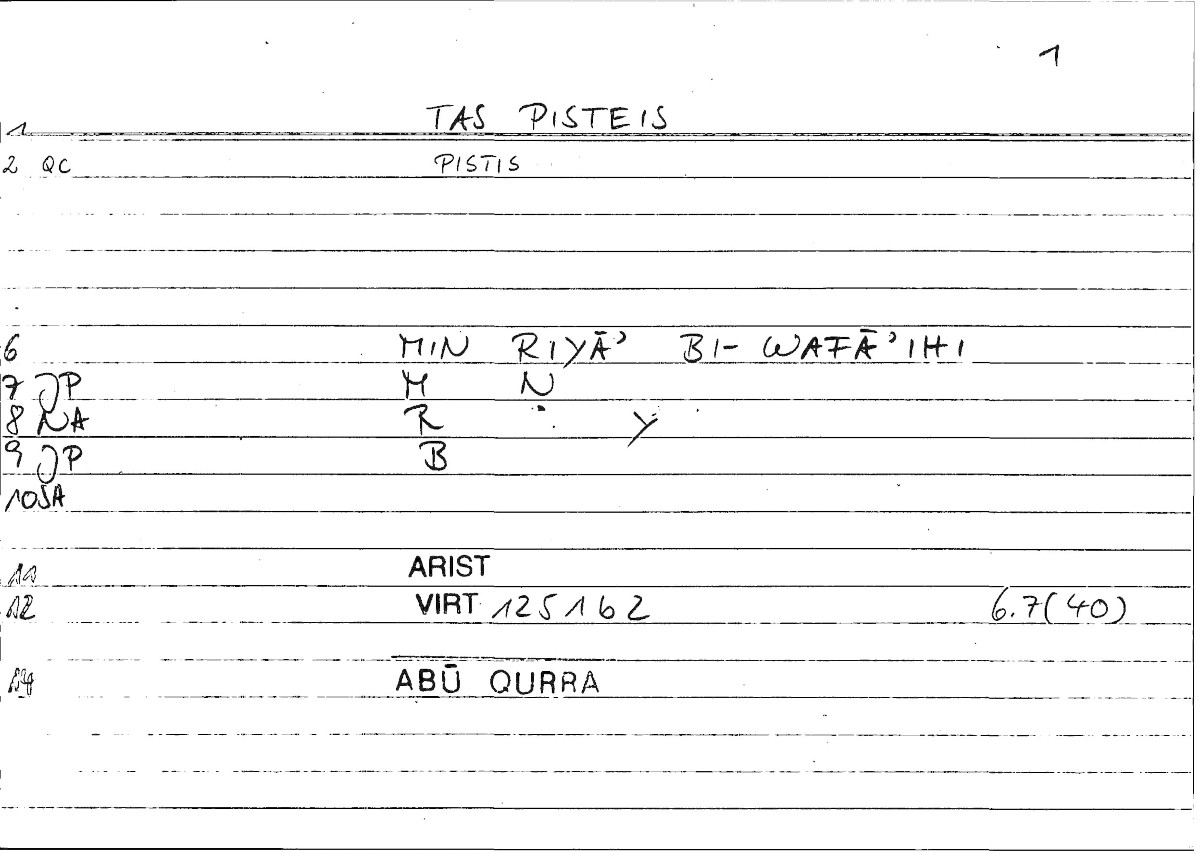 1
1 TAS PISTEIS
2 QC PISTIS
6 MIN RIYĀ’ BI- WAFĀ’IHI
7 JP M N
8 NA R Y
9 JP B
10 SA
11 ARIST
12 VIRT 125162 6.7(40)
14 ABŪ QURRA